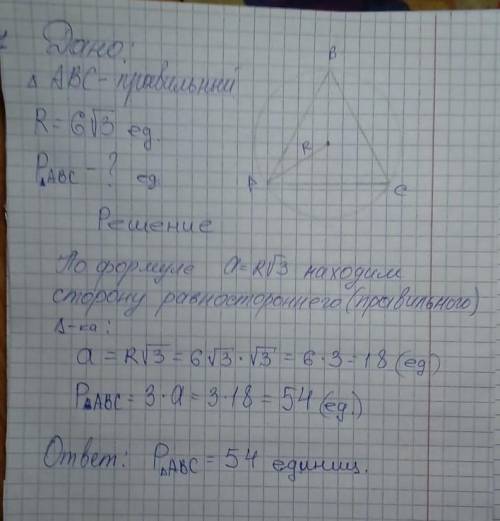 Дано:
Δ ABC - правильный
R = 6√3 ед.
P_ΔABC - ? ед
B
R
A
C
Решение
По формуле a = R√3 находим
сторону равностороннего (правильного)
Δ-ка:
a = R√3 = 6√3 · √3 = 6 · 3 = 18 (ед)
P_ΔABC = 3 · a = 3 · 18 = 54 (ед.)
Ответ: P_ΔABC = 54 единиц.